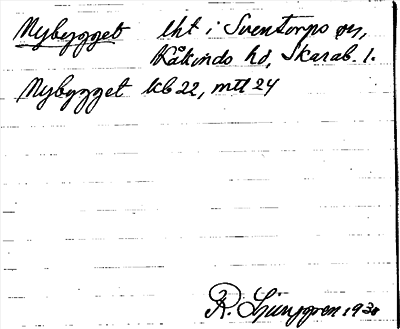 Nybygget lht i Sventorps sn,
Kåkinds hd, Skarab. l.
Nybygget kb 22, mtl 24
R. Ljunggren 1930